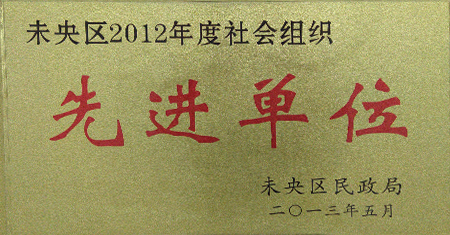 未央区2012年度社会组织
先进单位
未央区民政局
二〇一三年五月